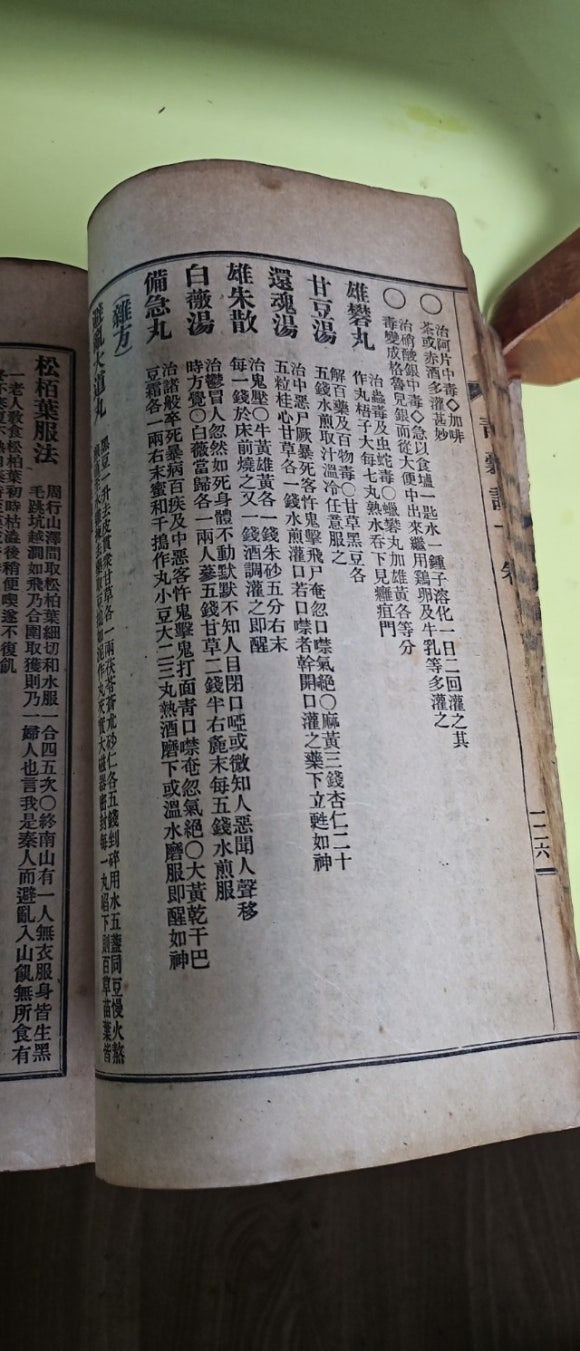 治阿片中毒◇加啡
茶或赤酒多灌甚妙
治硝酸銀中毒◇急以食塩一匙水一鍾子溶化一日二回灌之其
毒變成格魯兒銀而從大便中出來繼用鶏卵及牛乳等多灌之
雄礬丸
治蠱毒及虫蛇毒○蠟礬丸加雄黃各等分
作丸梧子大每七丸熟水呑下見癰疽門
甘豆湯
解百藥及百物毒○甘草黑豆各
五錢水煎取汁溫冷任意服之
還魂湯
治中惡尸厥暴死客忤鬼擊飛尸奄忽口噤氣絕○麻黃三錢杏仁二十
五粒桂心甘草各一錢水煎灌口若口噤者斡開口灌之藥下立甦如神
雄朱散
治鬼魘○牛黃雄黃各一錢朱砂五分右末
每一錢於床前燒之又一錢酒調灌之卽醒
白薇湯
治鬱冒人忽然如死身體不動默默不知人目閉口啞或微知人惡聞人聲移
時方覺○白薇當歸各一兩人蔘五錢甘草二錢半右麁末每五錢水煎服
備急丸
治諸般卒死暴病百疾及中惡客忤鬼擊鬼打面靑口噤奄忽氣絕○大黃乾干巴
豆霜各一兩右末蜜和千搗作丸小豆大二三丸熱酒磨下或溫水磨服卽醒如神
雜方
避亂大道丸
黑豆一升去皮貫衆甘草各一兩茯苓蒼朮砂仁各五錢剉碎用水五盞同豆慢火熬
一二六
松栢葉服法
周行山澤間取松柏葉細切和水服一合四五次○終南山有一人無衣服身皆生黑
毛跳坑越澗如飛乃合圍取獲則乃一婦人也言我是秦人而避亂入山飢無所食有
一老人敎食松柏葉初時枯澁後稍便喫遂不復飢